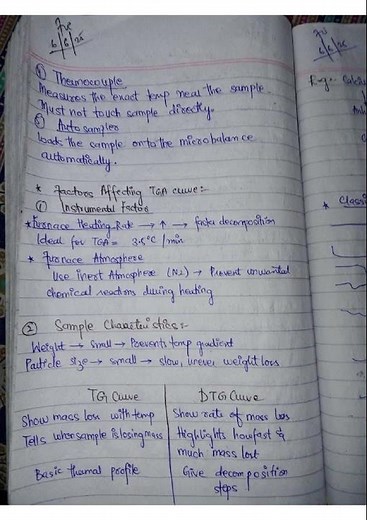 Thermocouple
Measures the exact temp near the sample.
Must not touch sample directly.
Auto sampler
loads the sample onto the microbalance
automatically.
* Factors Affecting TGA curve:-
① Instrumental Factor
* Furnace Heating Rate → ↑ → faster decomposition
Ideal for TGA = 3.5°C / min
* Furnace Atmosphere
Use Inert Atmosphere (N₂) → Prevent unwanted
chemical reactions during heating
② Sample Characteristics:-
Weight → Small → Prevents temp gradient
Particle size → small → slow, uneven weight loss
TG Curve
DTG Curve
Show mass loss with temp
Show rate of mass loss
Tells when sample is losing mass
Highlights how fast &
much mass lost
Basic thermal profile
Give decomposition
steps
E.g.
* Classi